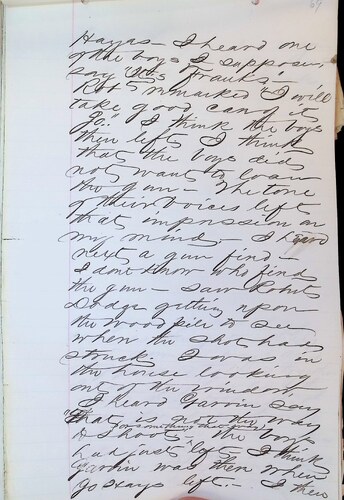 69
Hayas - I heard one
of the boys I suppose,
say "It's Frank's" -
Robt remarked "I will
take good care of it
I think the boys
then left. I think
that the boys did
not want to loan
the gun - The tone
of their voices left
that impression on
my mind. - I heard
next a gun fired -
I dont know who fired
the gun - saw Robts
Dodge getting upon
the wood pile to see
where the shot had
struck. I was in
the house looking
out of the window,
I heard Garvin say
that is not the way
or something that way
to shoot - the boys
had just left I think
Garvin was then where
go Hays left. - I then